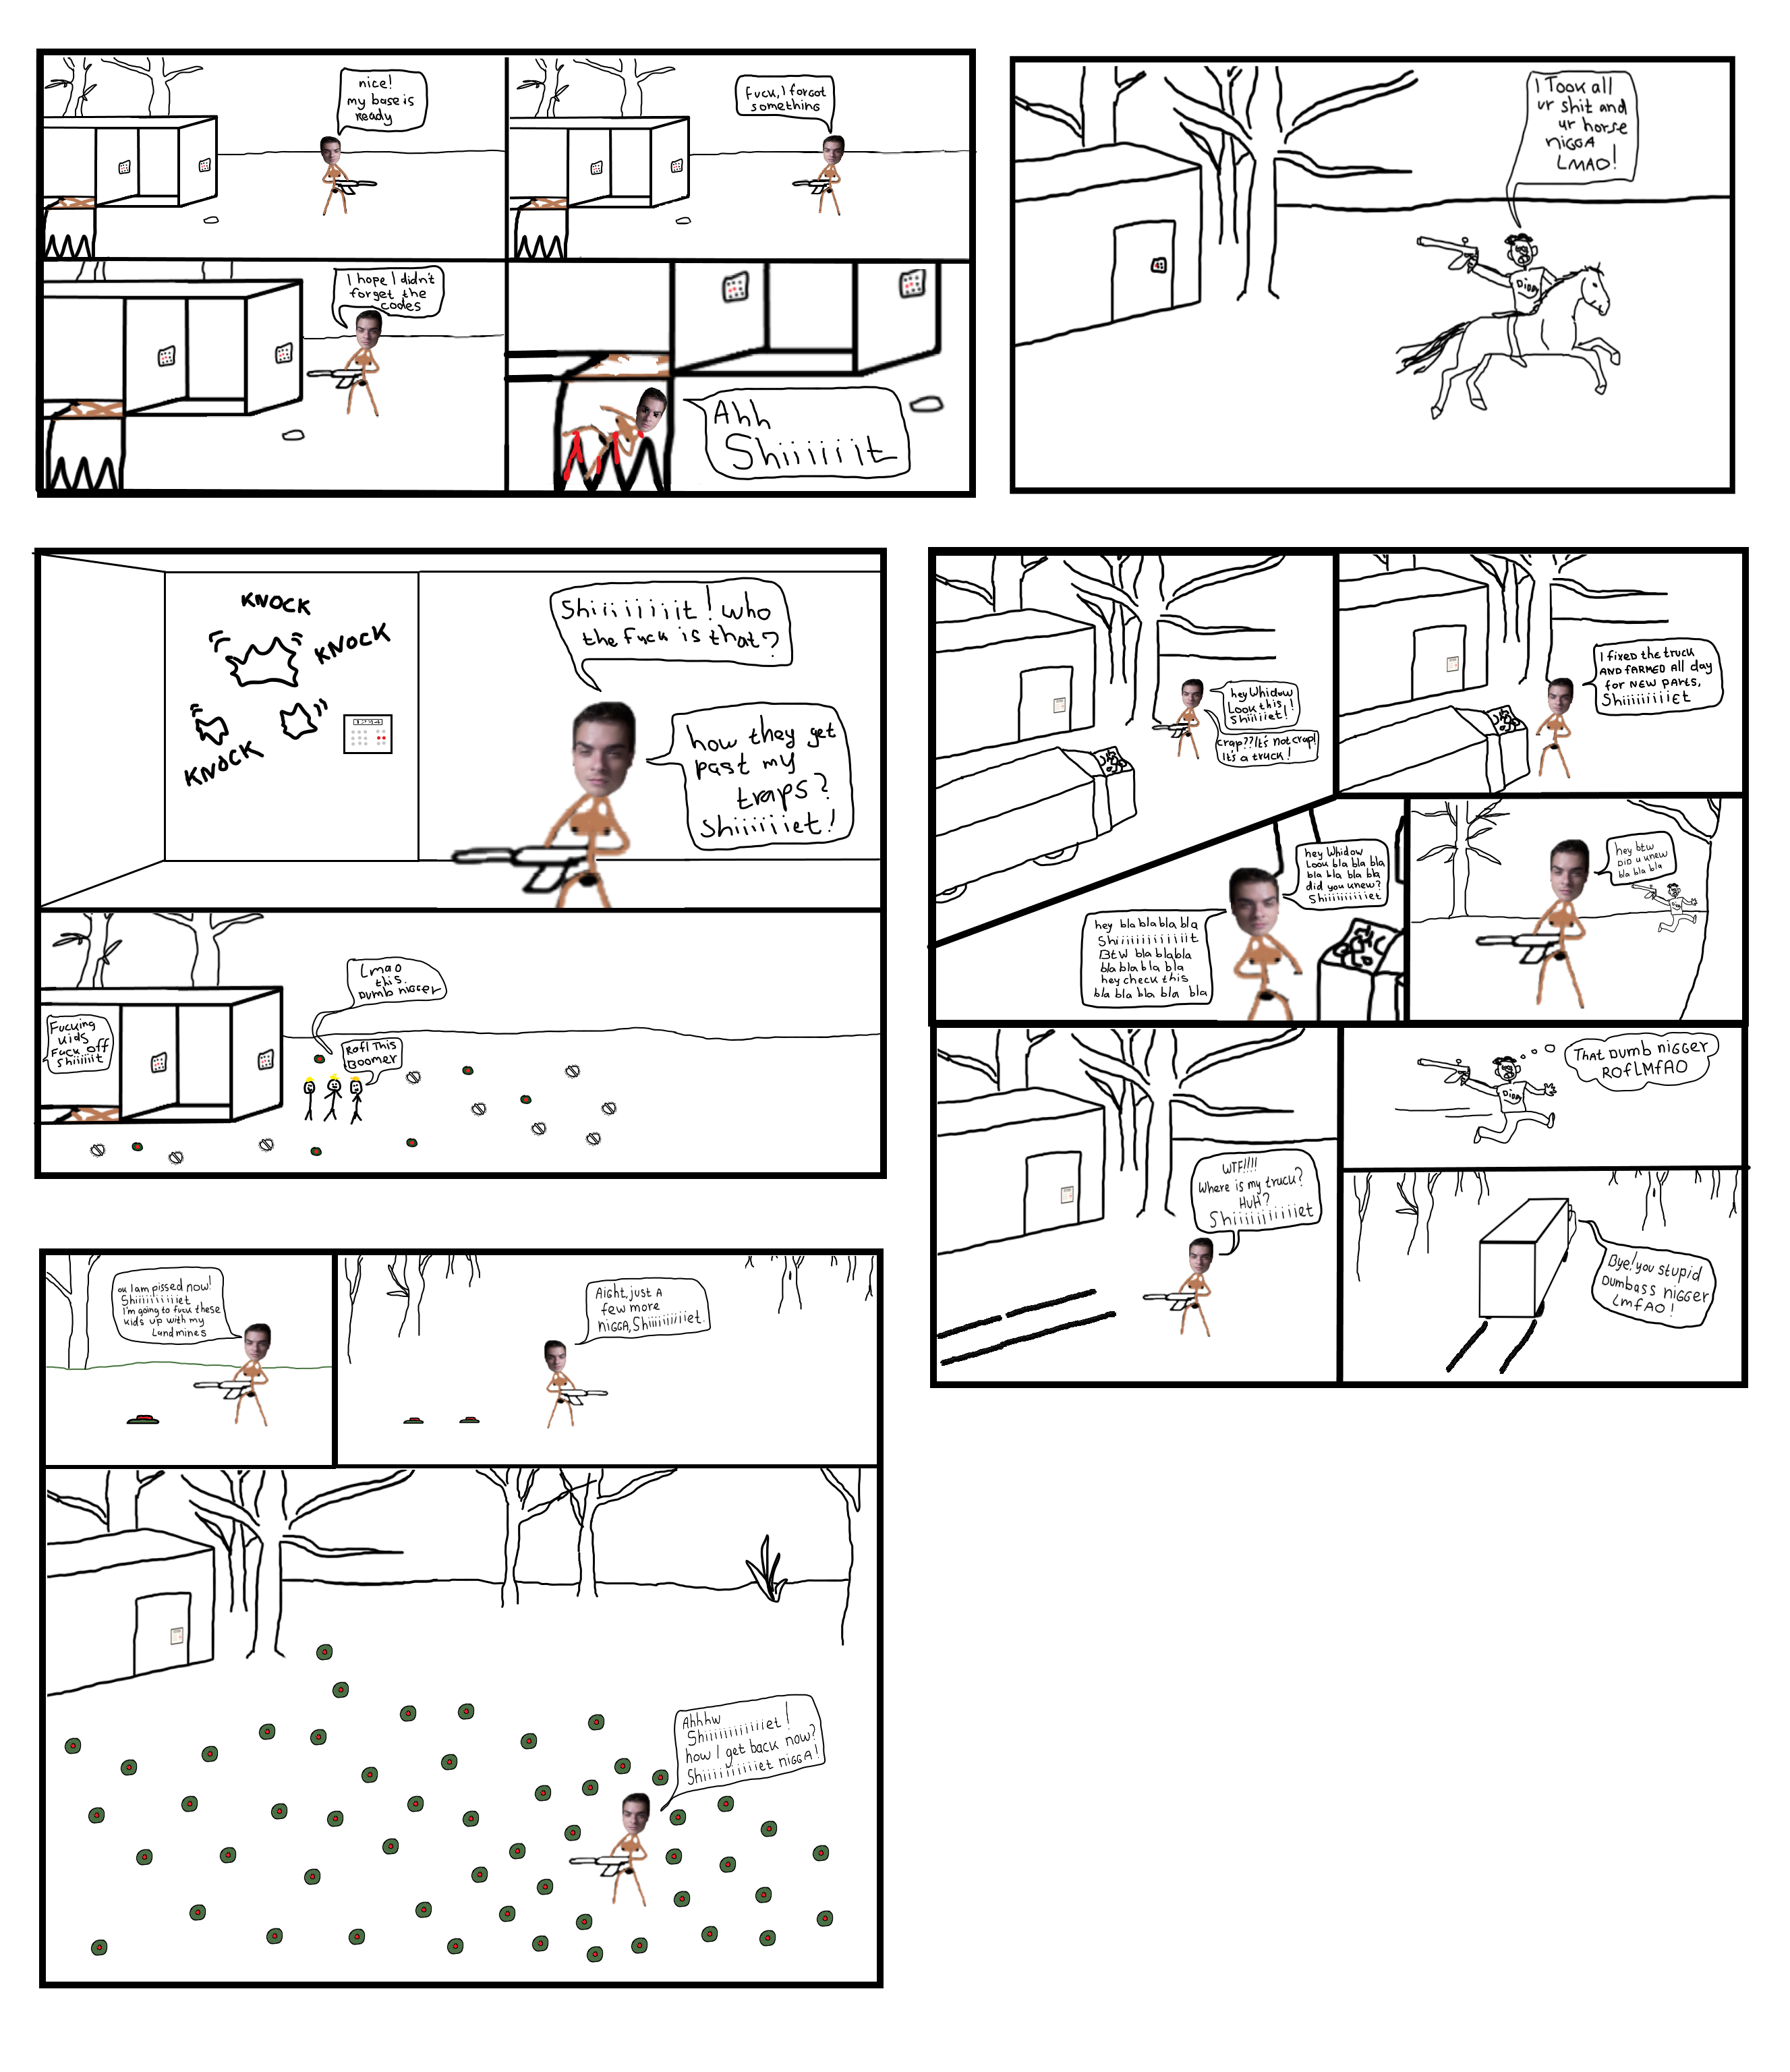 nice!
my base is
ready
Fuck, I forgot
something
I hope I didn't
forget the
codes
Ahh
Shiiiiiit
I Took all
ur shit and
ur horse
nigga
LMAO!
DIDDY
KNOCK
KNOCK
KNOCK
Shiiiiiiit! who
the fuck is that?
how they get
past my
traps?
Shiiiiiiet!
Fucking
kids
Fuck off
Shiiiiit
Lmao
this
Dumb nigger
Rofl This
Boomer
hey Whidow
Look this!
Shiiiiet!
crap?? It's not crap!
It's a truck!
I fixed the truck
AND fARMED All day
for NEW PARts,
Shiiiiiiiiet
hey Whidow
Look bla bla bla
bla bla bla bla
did you knew?
Shiiiiiiiiiet
hey bla bla bla bla
Shiiiiiiiiiiiit
Btw bla bla bla
bla bla bla bla
hey check this
bla bla bla bla bla
hey btw
DID u knew
bla bla bla
WTF!!!!
Where is my truck?
HuH?
Shiiiiiiiiiiiet
THAT DUMB NIGGER
ROFLMFAO
DIDDY
Bye! you stupid
Dumbass nigger
LmfAO!
ok I am pissed now!
Shiiiiiiiiiet
I'm going to fuck these
kids up with my
Landmines
Aight, just A
few more
nigga, Shiiiiiiiiiet.
Ahhhw
Shiiiiiiiiiiiet!
how I get back now?
Shiiiiiiiiiiet nigga!